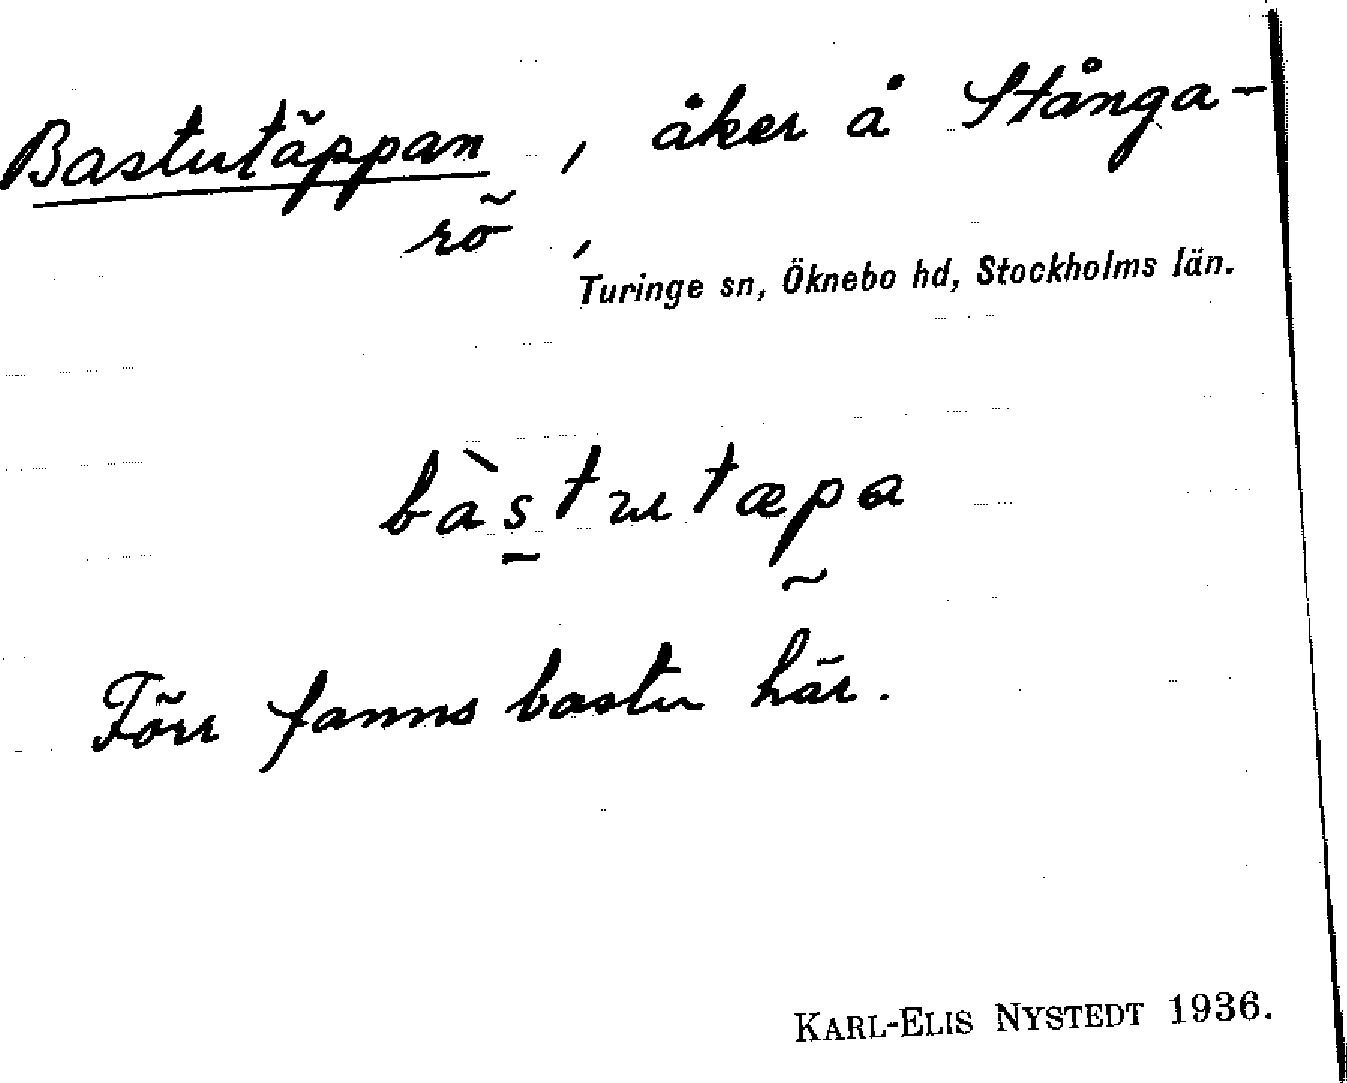 Bastutäppan, åker å Stånga-
rö,
Turinge sn, Öknebo hd, Stockholms län.
bàs̲tutæp̰a
Förr fanns bastu här.
KARL-ELIS NYSTEDT 1936.